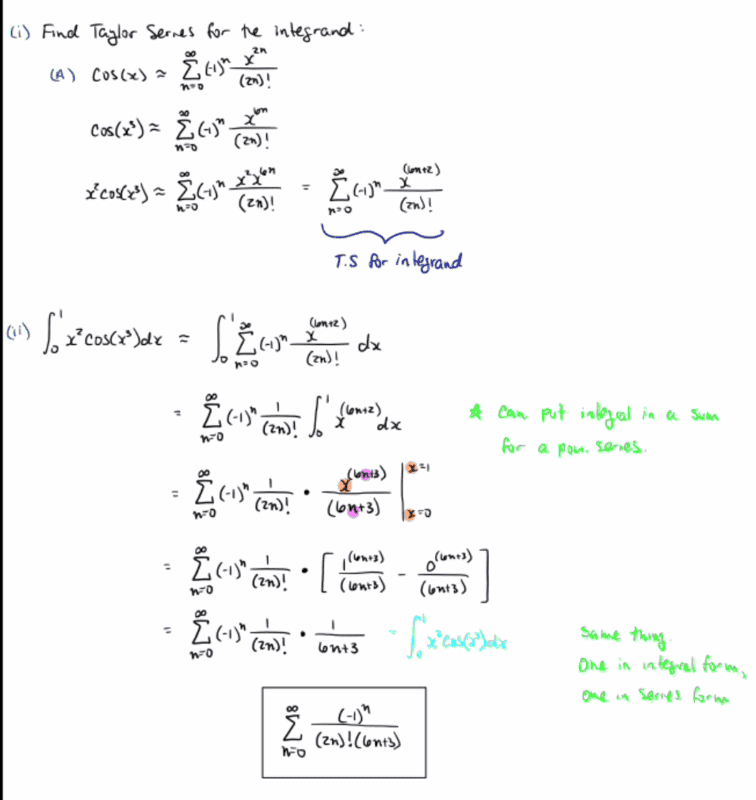 (i) Find Taylor Series for the integrand:
(A) cos(x) ≈ ∑_{n=0}^{∞} (-1)^n x^{2n}/(2n)!
cos(x³) ≈ ∑_{n=0}^{∞} (-1)^n x^{6n}/(2n)!
x²cos(x³) ≈ ∑_{n=0}^{∞} (-1)^n x²x^{6n}/(2n)! = ∑_{n=0}^{∞} (-1)^n x^{(6n+2)}/(2n)!
T.S for integrand
(ii) ∫_0^1 x²cos(x³)dx ≈ ∫_0^1 ∑_{n=0}^{∞} (-1)^n x^{(6n+2)}/(2n)! dx
= ∑_{n=0}^{∞} (-1)^n 1/(2n)! ∫_0^1 x^{(6n+2)} dx
* can put integral in a sum
for a pow. series.
= ∑_{n=0}^{∞} (-1)^n 1/(2n)! • x^{(6n+3)}/(6n+3) |_{x=0}^{x=1}
= ∑_{n=0}^{∞} (-1)^n 1/(2n)! • [1^{(6n+3)}/(6n+3) - 0^{(6n+3)}/(6n+3)]
= ∑_{n=0}^{∞} (-1)^n 1/(2n)! • 1/(6n+3) = ∫_0^1 x²cos(x³)dx
same thing.
One in integral form,
one in series form
∑_{n=0}^{∞} (-1)^n/((2n)!(6n+3))